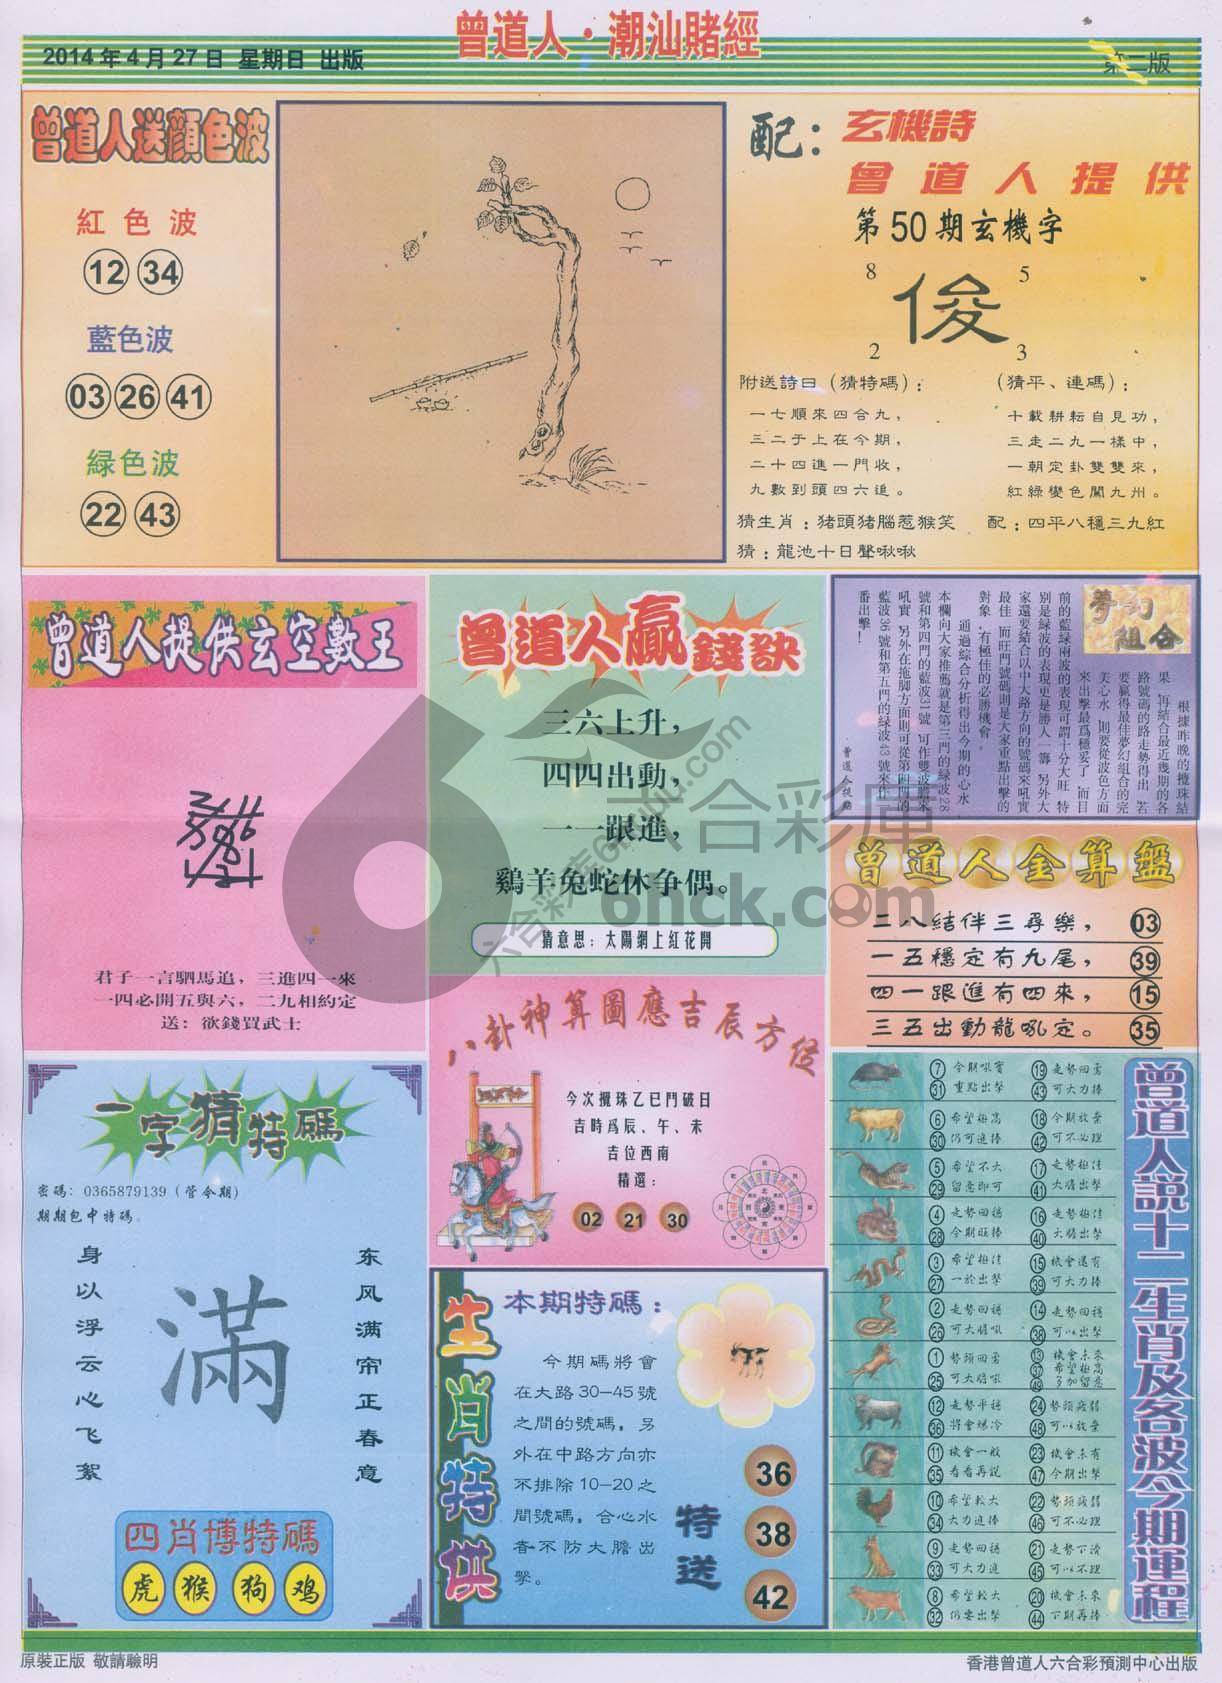 曾道人·潮汕賭經
2014年4月27日 星期日 出版
第二版
曾道人送顔色波
紅色波
12 34
藍色波
03 26 41
緑色波
22 43
配：
玄機詩
曾道人提供
第50期玄機字
8 5
俊
2 3
附送詩曰（猜特碼）：
一七順來四合九，
三二于上在今期，
二十四進一門收，
九數到頭四六追。
（猜平、連碼）：
十載耕耘自見功，
三走二九一樣中，
一朝定卦雙雙來，
紅綠變色闖九州。
猜生肖：猪頭猪腦惹猴笑
配：四平八穩三九紅
猜：龍池十日聲啾啾
曾道人提供玄空數王
君子一言駟馬追，三進四一來
一四必開五與六，二九相約定
送：欲錢買武士
曾道人贏錢訣
三六上升，
四四出動，
一一跟進，
鷄羊兔蛇休争偶。
猜意思：太陽網上紅花開
夢幻組合
根據昨晚的攪珠結
果，再結合最近幾期的各
路號碼的路走勢得出，若
要贏得最佳夢幻組合的完
美心水，則要從波色方面
來出擊最爲穩妥了，而目
前的藍緑兩波的表現可謂十分大旺，特
别是緑波的表現更是勝人一籌，另外大
家還要結合以中大路方向的號碼來吼實
最佳，而旺門號碼則是大家重點出擊的
對象，有極佳的必勝機會。
通過綜合分析得出今期的心水，
本欄向大家推薦就是第三門的緑波28
號和第四門的藍波31號，可作雙波膽來
吼實，另外在拖脚方面則可從第四門的
藍波36號和第五門的緑波43號來作一
番出擊！
曾道人提點
曾道人金算盤
二八結伴三尋樂， 03
一五穩定有九尾， 39
四一跟進有四來， 15
三五出動龍吼定。 35
八卦神算圖應吉辰方位
今次攪珠乙巳鬥破日
吉時爲辰、午、未
吉位西南
精選：
02 21 30
一字猜特碼
密碼：0365879139（管令期）
期期包中特碼。
身以浮云心飞絮
滿
东风满帘正春意
四肖博特碼
虎 猴 狗 鸡
生肖特供
本期特碼：
今期碼將會
在大路30–45號
之間的號碼，另
外在中路方向亦
不排除10–20之
間號碼，合心水
者不防大膽出
擊。
特送
36
38
42
曾道人説十二生肖及各波今期運程
7 今期吼實 19 走勢回勇
31 重點出擊 43 可大力捧
6 希望極高 18 今期放棄
30 仍可追捧 42 可不必理
5 希望不大 17 走勢極佳
29 留意即可 41 大膽出擊
4 走勢回穩 16 走勢極佳
28 今期旺捧 40 大膽出擊
3 希望極佳 15 機會還有
27 一於出擊 39 可大力捧
2 走勢回穩 14 走勢回穩
26 可大膽吼 38 可以出擊
1 勢頭回勇 13 機會未來
25 可大膽吼 37 希望極高
49 多加留意
12 走勢平穩 24 勢頭疲弱
36 將會爆冷 48 可以放棄
11 機會一般 23 機會未有
35 看看再説 47 今期出擊
10 希望較大 22 勢頭疲弱
34 大力追捧 46 可不必理
9 走勢回穩 21 走勢下滑
33 可大力追 45 可以不理
8 希望較大 20 機會未來
32 仍要出擊 44 下期再捧
六合彩庫
6hck.com
原裝正版 敬請驗明
香港曾道人六合彩預測中心出版